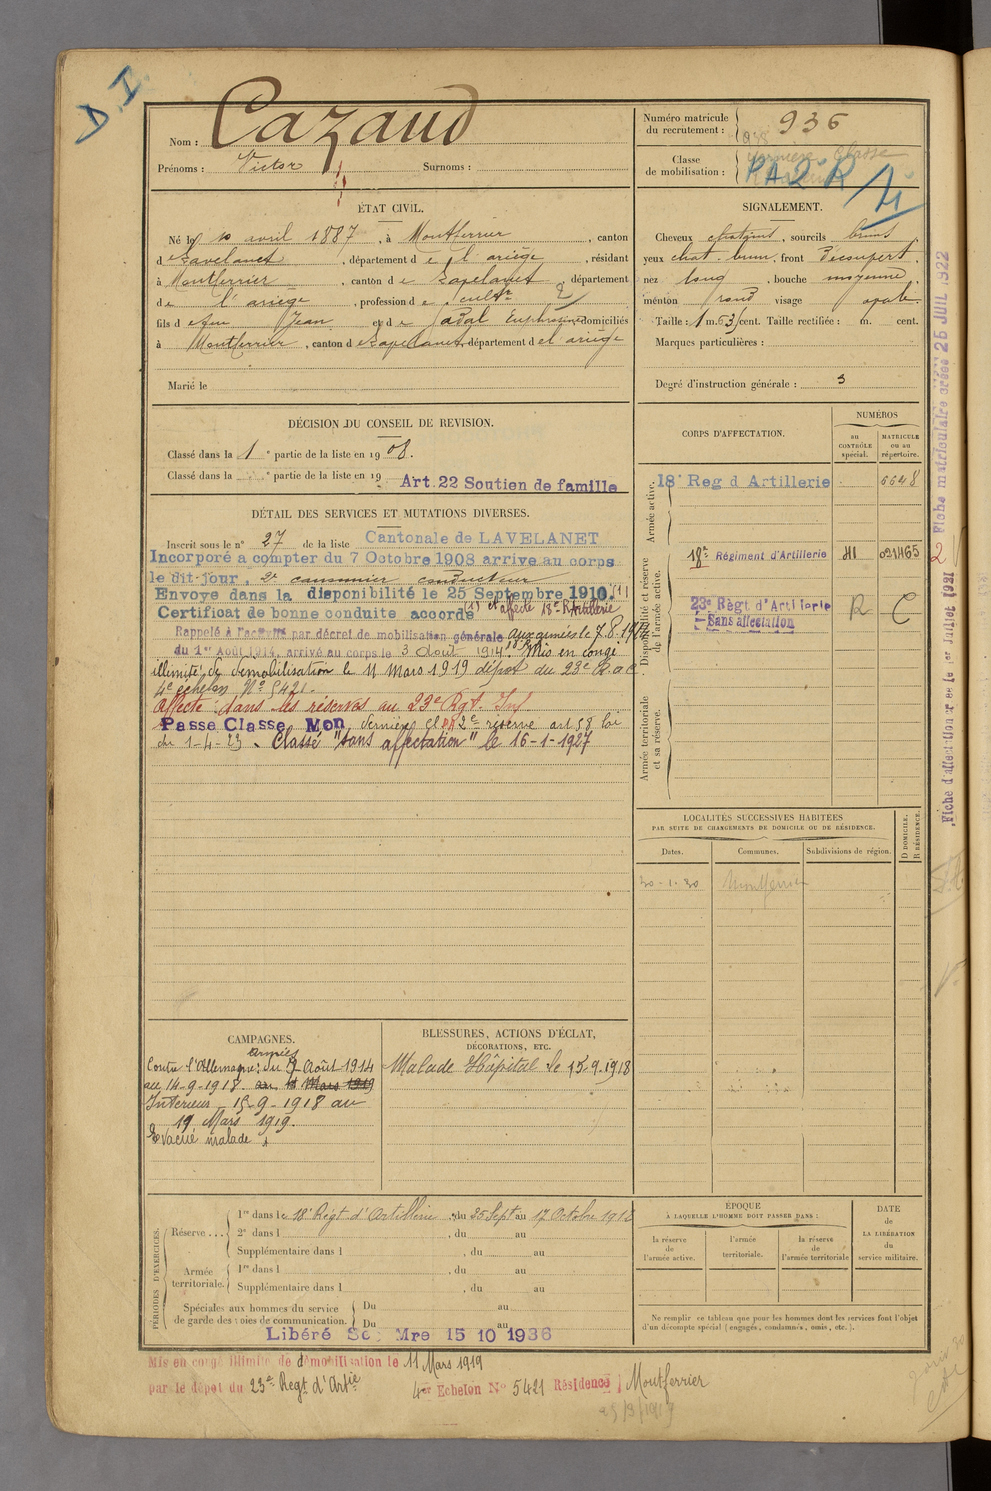 D. I.
Nom : Cazaud
Prénoms : Victor Surnoms :
Numéro matricule du recrutement : 936
938
Classe de mobilisation : dernière Classe
P A 2e R
ÉTAT CIVIL.
Né le 10 avril 1887, à Montferrier, canton
de Lavelanet, département de l'ariège, résidant
à Montferrier, canton de Lavelanet, département
de l'ariège, profession de cultr 2
fils de feu Jean et de Adal Euphrosine domiciliés
à Montferrier, canton de Lavelanet, département de l'ariège
Marié le
SIGNALEMENT.
Cheveux chatains, sourcils bruns,
yeux chat. brun, front Découvert,
nez long, bouche moyenne,
menton rond visage ovale.
Taille : 1 m. 63 cent. Taille rectifiée : m. cent.
Marques particulières :
Degré d'instruction générale : 3
DÉCISION DU CONSEIL DE REVISION.
Classé dans la 1e partie de la liste en 1908.
Classé dans la e partie de la liste en 19
Art. 22 Soutien de famille
DÉTAIL DES SERVICES ET MUTATIONS DIVERSES.
Inscrit sous le n° 27 de la liste Cantonale de LAVELANET
Incorporé a compter du 7 Octobre 1908 arrive au corps
le dit-jour, 2e canonnier conducteur
Envoye dans la disponibilité le 25 Septembre 1910. (1)
Certificat de bonne conduite accordé (1) et affecté 18e R. Artillerie
Rappelé à l'activité par décret de mobilisation générale aux armées le 7.8.1914
du 1er Août 1914, arrivé au corps le 3 Août 1914. Mis en congé
illimité de démobilisation le 11 Mars 1919 dépot du 23e R.a.c.
4e échelon N° 5421.
Affecté dans les réserves au 23e Rgt. Inf
Passe Classe Mon dernière cl PA 2e réserve art 58 loi
du 1-4-23. Classé "sans affectation" le 16-1-1927
CORPS D'AFFECTATION.
NUMÉROS
au CONTRÔLE spécial.
MATRICULE ou au répertoire.
Armée active.
18e Reg d Artillerie 5548
Disponibilité et réserve de l'armée active.
18e Régiment d'Artillerie HI 021465
23e Règt d'Artillerie R C
Sans affectation
Armée territoriale et sa réserve.
LOCALITÉS SUCCESSIVES HABITÉES
PAR SUITE DE CHANGEMENTS DE DOMICILE OU DE RÉSIDENCE.
Dates. Communes. Subdivisions de région. D DOMICILE. R RÉSIDENCE.
30-1-30 Montferrier
2 Fiche matriculaire créée 25 JUIL 1922
Fiche d'affectation créée le 1er Juillet 1931
CAMPAGNES.
armées
Contre l'Allemagne : du 7 Août 1914
au 14-9-1918. au 11 Mars 1919
Intérieur 15-9-1918 au
19 Mars 1919.
Evacué malade
BLESSURES, ACTIONS D'ÉCLAT,
DÉCORATIONS, ETC.
Malade Hôpital le 15.9.1918
PÉRIODES D'EXERCICES.
Réserve ... 1re dans le 18e Régt d'Artillerie, du 25 Sept au 17 Octobre 1912
2e dans l , du au
Supplémentaire dans l , du au
Armée territoriale. 1re dans l , du au
Supplémentaire dans l , du au
Spéciales aux hommes du service de garde des voies de communication. Du au
Du au
Libéré Se Mre 15 10 1936
ÉPOQUE
À LAQUELLE L'HOMME DOIT PASSER DANS :
la réserve de l'armée active.
l'armée territoriale.
la réserve de l'armée territoriale
DATE de LA LIBÉRATION du service militaire.
Ne remplir ce tableau que pour les hommes dont les services font l'objet
d'un décompte spécial (engagés, condamnés, omis, etc.).
Mis en congé illimité de démobilisation le 11 Mars 1919
par le dépot du 23e Regt d'Artie 4er Echelon N° 5421 Résidence Montferrier
25/3/1919